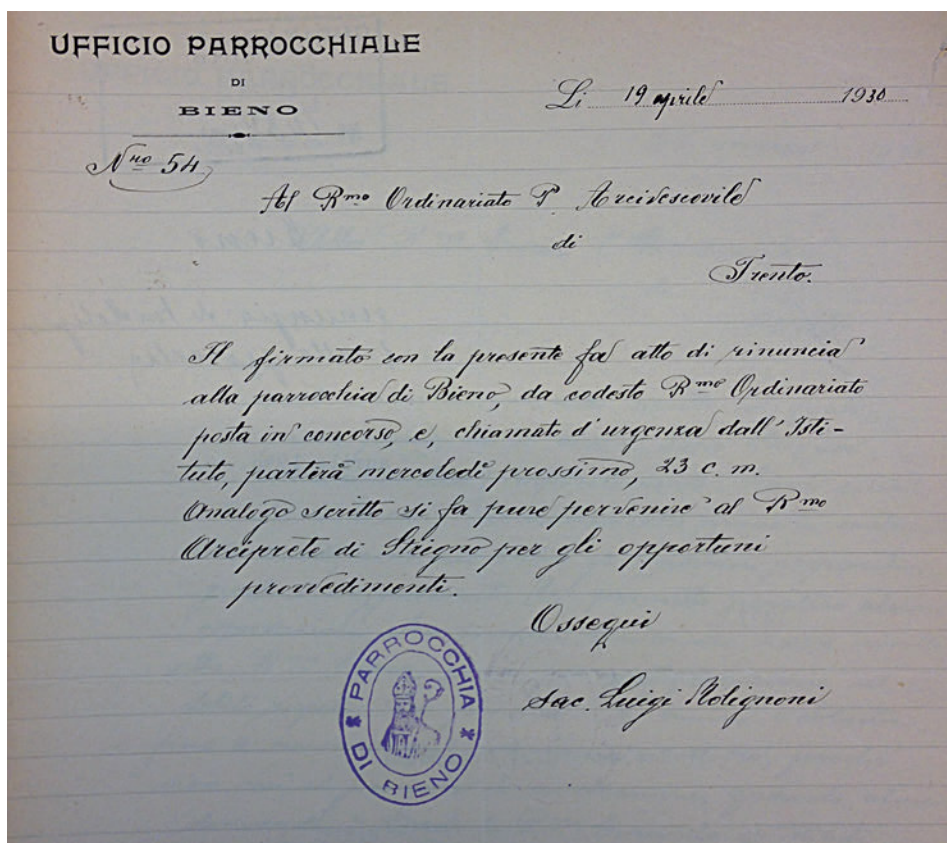 UFFICIO PARROCCHIALE
DI
BIENO
Li 19 aprile 1930
Nro 54
Al Rmo Ordinariato P. Arcivescovile
di
Trento.
Il firmato con la presente fa atto di rinuncia
alla parrocchia di Bieno, da codesto Rmo Ordinariato
posta in concorso, e, chiamato d'urgenza dall'Isti-
tuto, partirà mercoledì prossimo, 23 c. m.
Analogo scritto si fa pure pervenire al Rmo
Arciprete di Strigno per gli opportuni
provvedimenti.
Ossequi
sac. Luigi
PARROCCHIA
DI BIENO